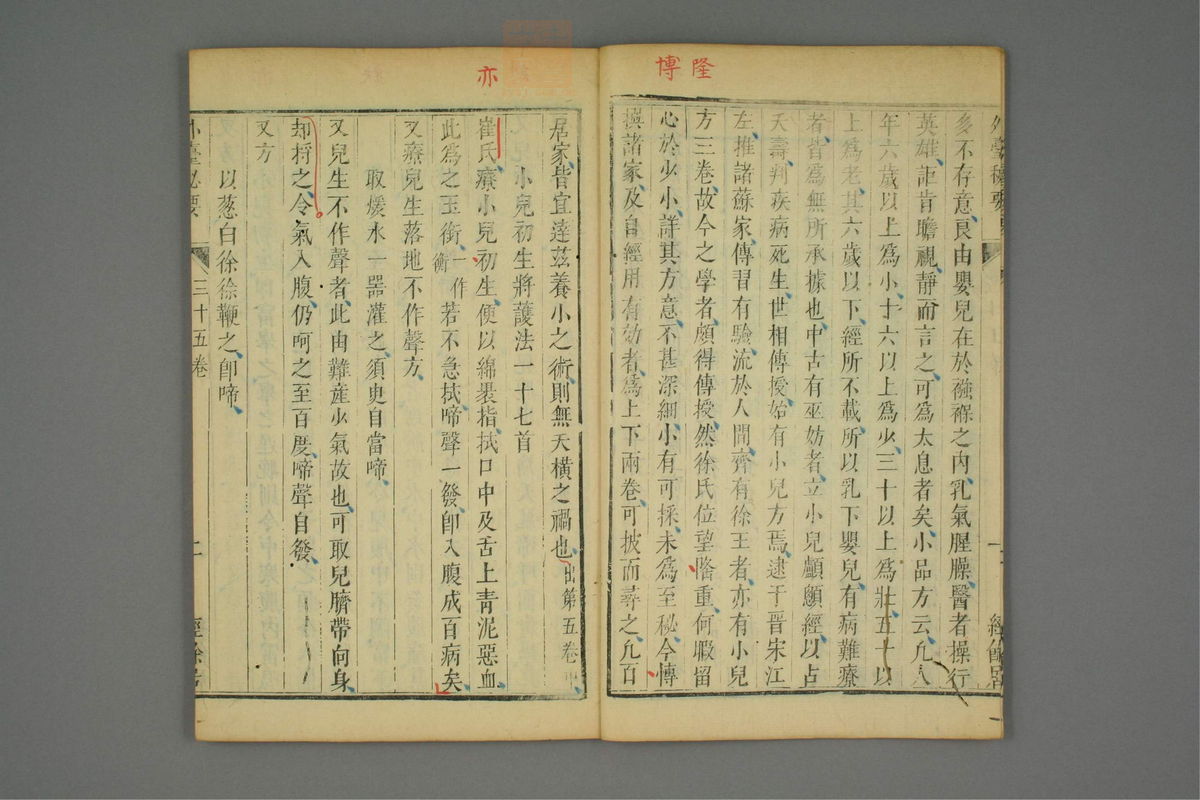 隆
博
多不存意良由嬰兒在於襁褓之內乳氣腥臊醫者操行
英雄詎肯瞻視靜而言之可爲太息者矣小品方云凡人
年六歲以上爲小十六以上爲少三十以上爲壯五十以
上爲老其六歲以下經所不載所以乳下嬰兒有病難療
者皆爲無所承據也中古有巫妨者立小兒顱顖經以占
夭壽判疾病死生世相傳授始有小兒方焉逮于晉宋江
左推諸蘇家傳習有驗流於人間齊有徐王者亦有小兒
方三卷故今之學者頗得傳授然徐氏位望隆重何暇留
心於少小詳其方意不甚深細小有可採未爲至秘今愽
撰諸家及自經用有効者爲上下兩卷可披而尋之凡百
亦
居家皆宜達茲養小之術則無夭橫之禍也出第五卷中
小兒初生將護法一十七首
崔氏療小兒初生便以綿裹指拭口中及舌上青泥惡血
此爲之玉衡一作衝若不急拭啼聲一發卽入腹成百病矣
又療兒生落地不作聲方
取煖水一器灌之須臾自當啼
又兒生不作聲者此由難產少氣故也可取兒臍帶向身
却捋之令氣入腹仍呵之至百度啼聲自發
又方
以葱白徐徐鞭之卽啼
外臺秘要
三十五卷
二
經餘居